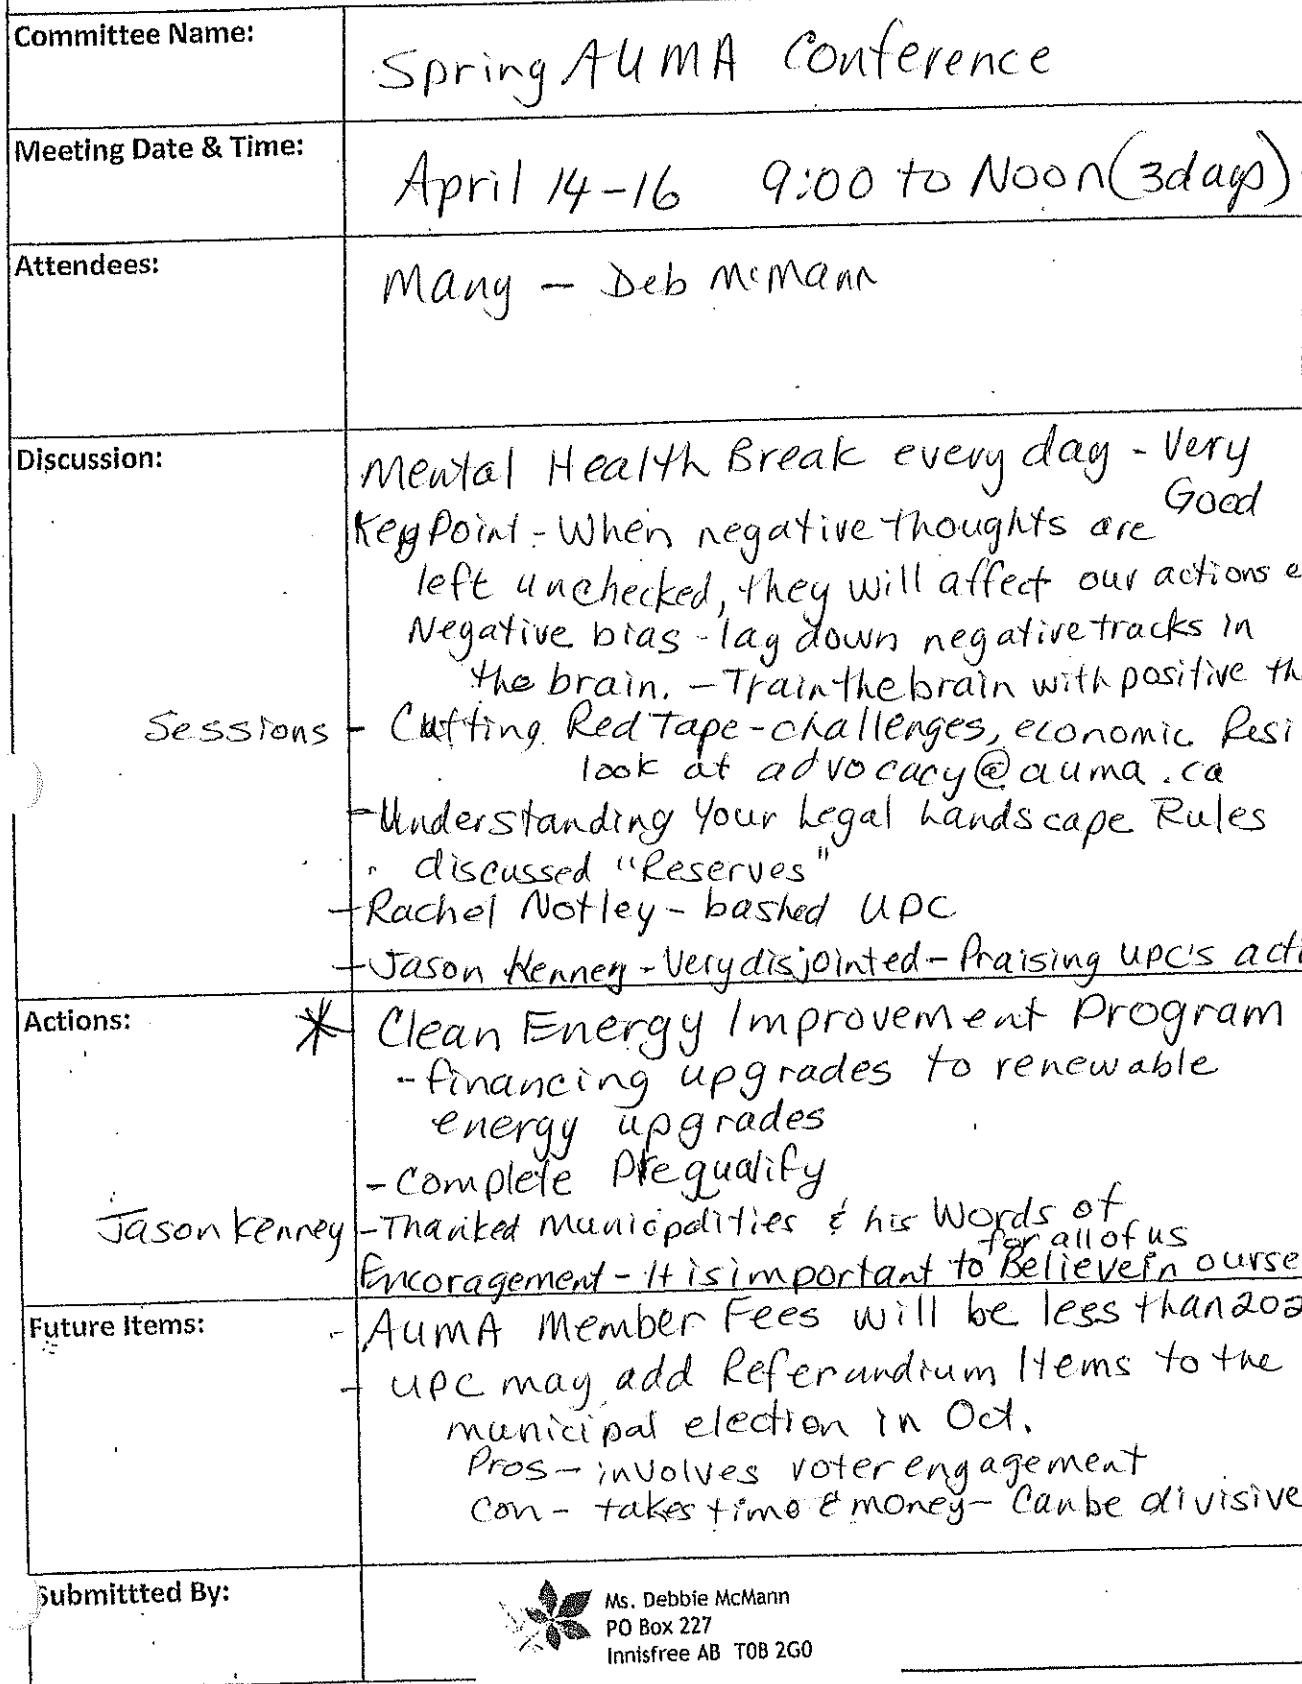 Committee Name:
Spring AUMA Conference
Meeting Date & Time:
April 14-16 9:00 to Noon (3days)
Attendees:
Many - Deb McMann
Discussion:
Mental Health Break every day - Very
Good
Key Point - When negative thoughts are
left unchecked, they will affect our actions
Negative bias - lay down negative tracks in
the brain. - Train the brain with positive
Sessions - Cutting Red Tape - challenges, economic Resi
look at advocacy@auma.ca
- Understanding Your Legal Landscape Rules
discussed "Reserves"
- Rachel Notley - bashed UPC
- Jason Kenney - Very disjointed - Praising UPC's acti
Actions:
* Clean Energy Improvement Program
- financing upgrades to renewable
energy upgrades
- Complete Prequalify
Jason Kenney - Thanked Municipalities & his Words of
for all of us
Encoragement - It is important to Believe in ourse
Future Items:
- AUMA Member Fees will be less than 202
- UPC may add Referundium Items to the
municipal election in Oct.
Pros - involves voter engagement
Con - takes time & money - Can be divisive
Submittted By:
Ms. Debbie McMann
PO Box 227
Innisfree AB T0B 2G0